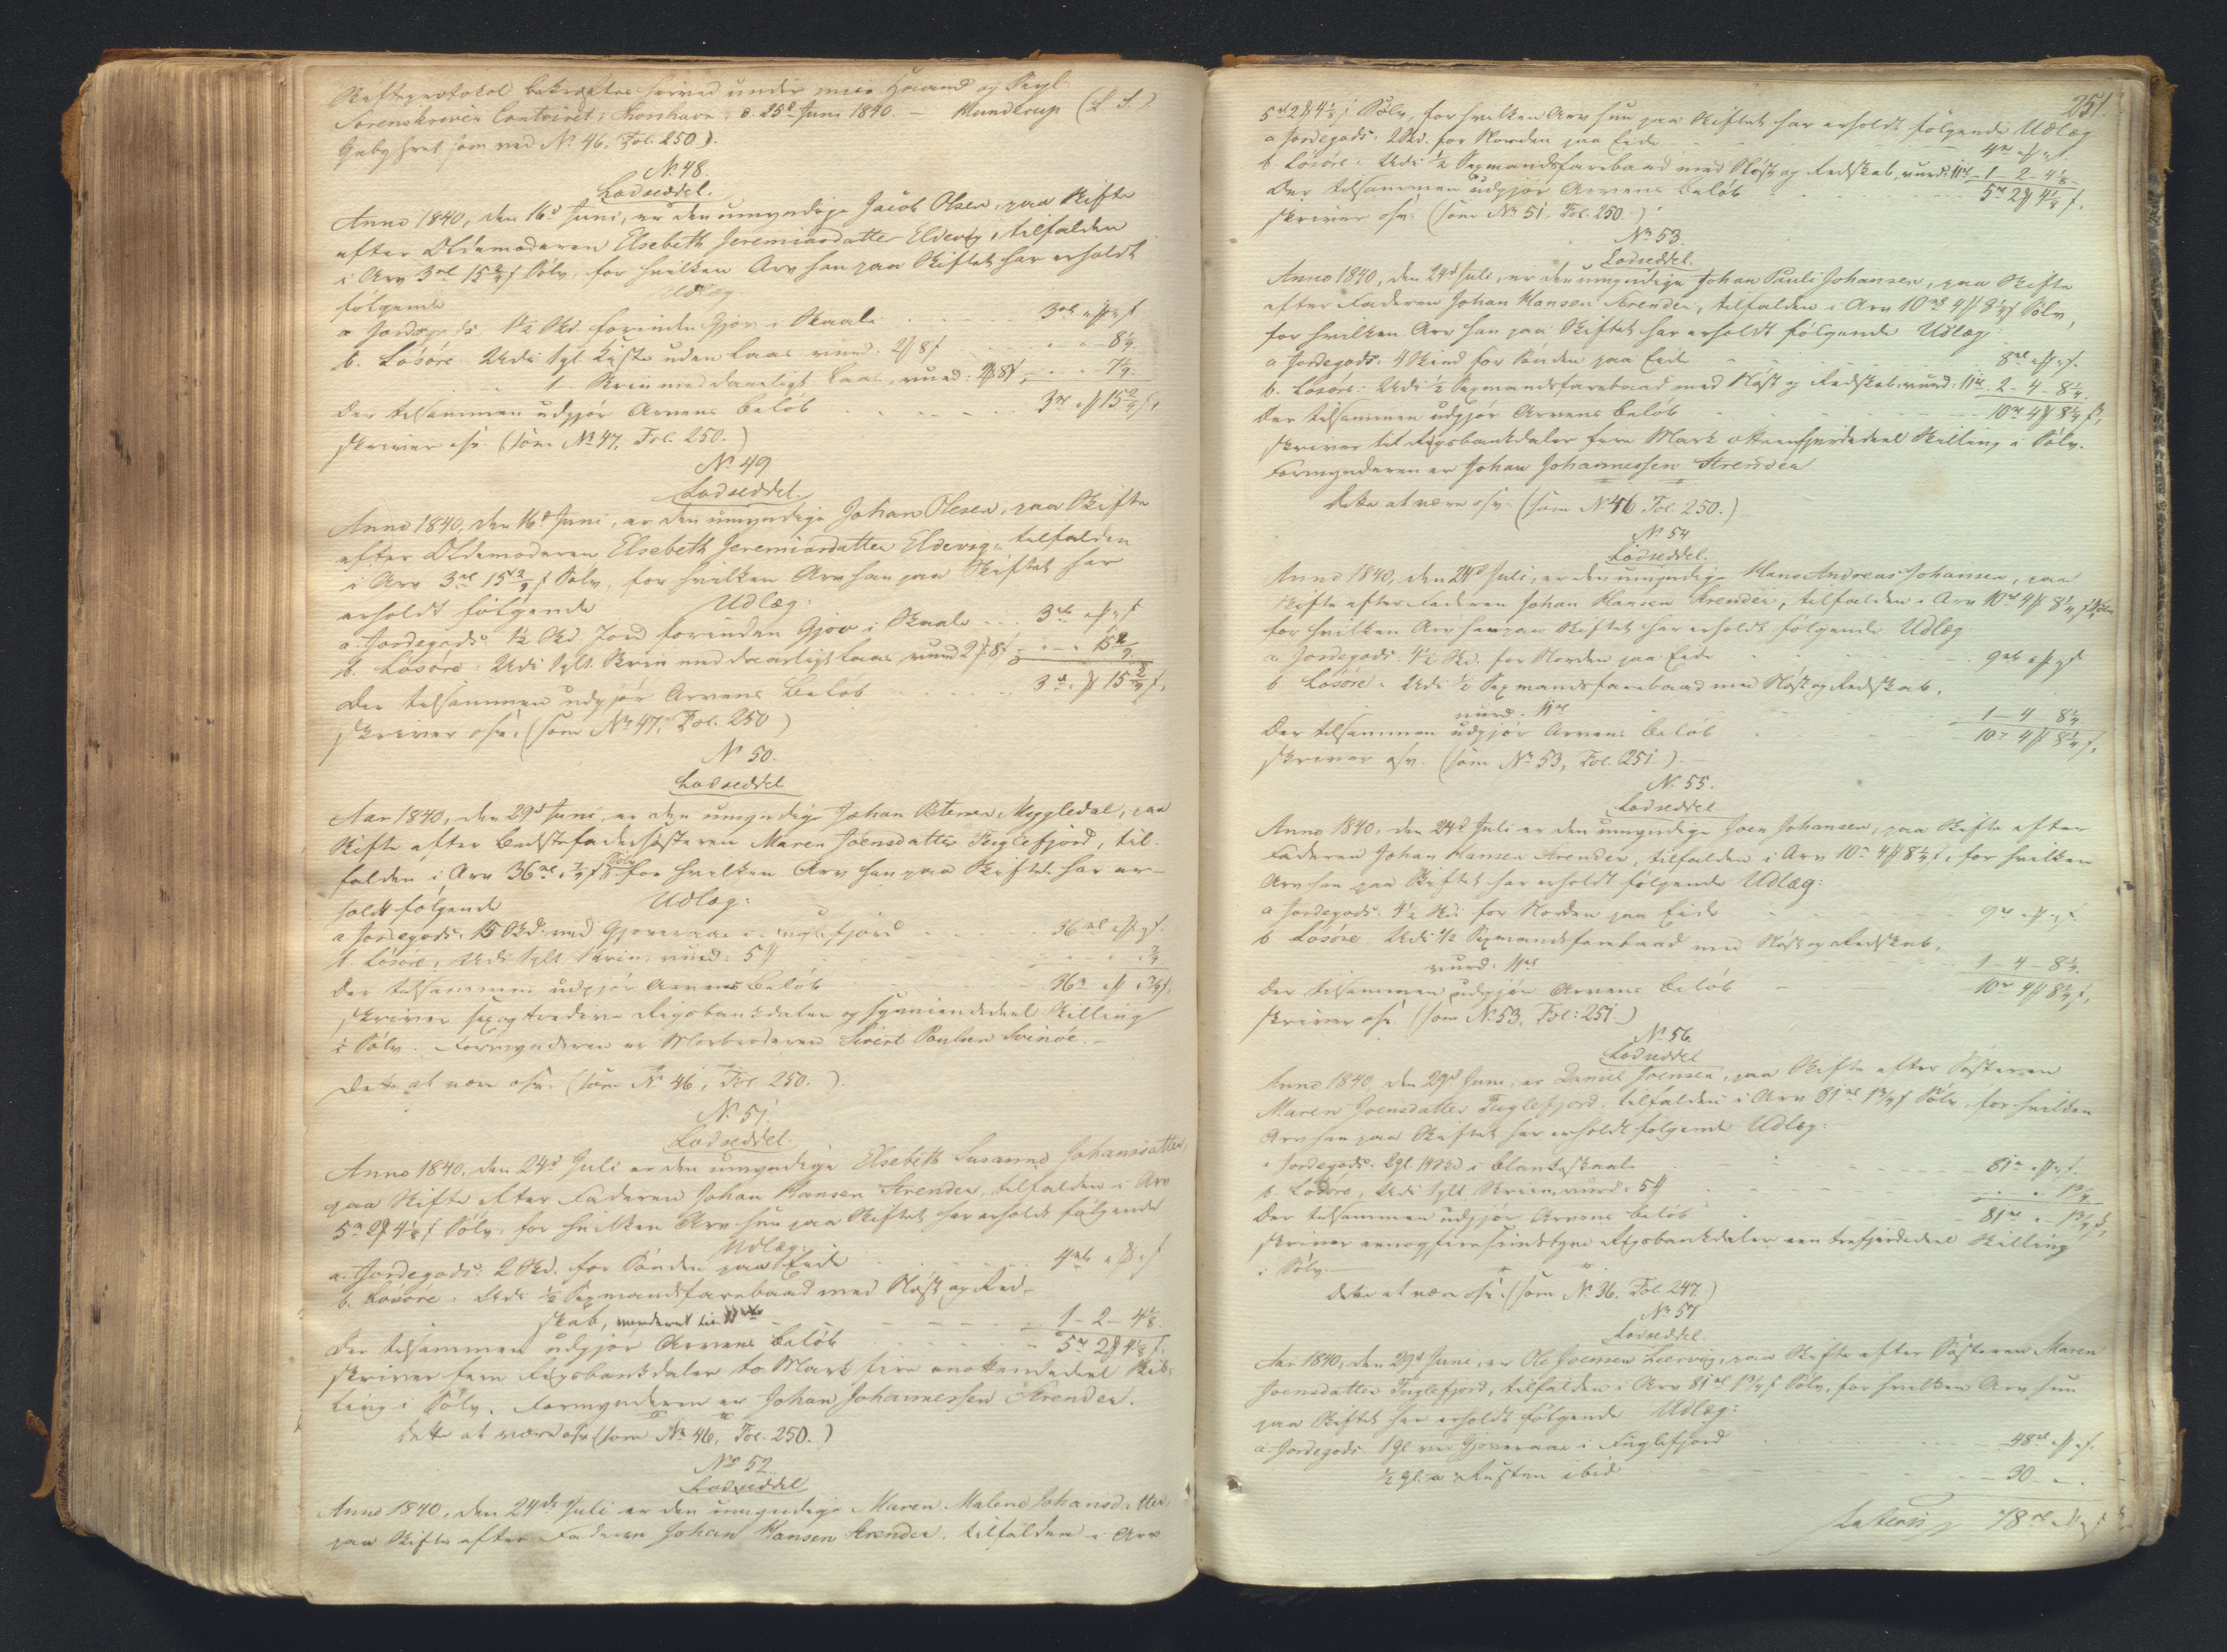 Skifteprotokol bekræftes herved under min Haand og Segl.
Sorenskriver Contoiret i Thorshavn, d. 25d Juni 1840. — Mundrup (L. S.)
Gebyhret som ved No 46, Fol. 250).
No 48.
Lodseddel.
Anno 1840, den 16d Juni, er den umyndige Jacob Olsen, paa Skifte
efter Oldemoderen Elsebeth Jeremiasdatter Eldevig, tilfalden
i Arv 3 rd 15 2/4 s Sølv, for hvilken Arv han paa Skiftet har erholdt
følgende Udlæg.
a Jordegods 1½ Skd. forinden Gjov i Skaale 3
b. Løsøre: Udi 1 gl. Kiste uden Laas vurd. 2 8 8¼.
1 Skrin med daarligt Laas, vurd: 7¼.
der tilsammen udgjør Arvens Beløb 3 15 2/4
skriver osv. (som No 47, Fol. 250.)
No 49
Lodseddel.
Anno 1840, den 16d Juni, er den umyndige Johan Olesen, paa Skifte
efter Oldemoderen Elsebeth Jeremiasdatter Eldevig, tilfalden
i Arv 3 rd 15 2/4 s Sølv, for hvilken Arv han paa Skiftet har
erholdt følgende Udlæg.
a. Jordegods: 1½ Skd. Jord forinden Gjov i Skaale 3
b. Løsøre: Udi 1 gl. Skrin med daarligt Laas vurd 2 8 15 2/4
der tilsammen udgjør Arvens Beløb 3 15 2/4
skriver osv. (som No 47, Fol. 250)
No 50.
Lodseddel
Aar 1840, den 29d Juni, er den umyndige Johan Petersen Mygledal, paa
Skifte efter Bedstefadersøsteren Maren Joensdatter Fuglefjord, til-
falden i Arv 36 rd Sølv for hvilken Arv han paa Skiftet har er-
holdt følgende Udlæg:
a. Jordegods: 15 Skd. ved Gjoveraae i Fuglefjord 36
b. Løsøre: Udi 1 gl. Skrin, vurd: 5
der tilsammen udgjør Arvens Beløb 36
skriver sex og tredive Rigsbankdaler og Skilling
i Sølv. Formynderen er Morbroderen Sivert Poulsen Svinøe. —
Dette at være osv. (som No 46, Fol. 250.)
No 51.
Lodseddel.
Anno 1840, den 24d Juli er den umyndige Elsebeth Susanne Johansdatter,
paa Skifte efter Faderen Johan Hansen Strender, tilfalden i Arv
5 rd 2 4⅛ s Sølv, for hvilken Arv hun paa Skiftet har erholdt følgende
Udlæg:
a. Jordegods: 2 Skd. for Sønden paa Eide 4
b. Løsøre: Udi ½ Sexmandsfarebaad med Nøst og Red-
skab, vurderet til 11 rd 1 - 2 - 4⅛.
der tilsammen udgjør Arvens Beløb 5 2 4⅛
skriver fem Rigsbankdaler to Mark fire enottendedeel Skil-
ling i Sølv. Formynderen er Johan Johannessen Strender.
Dette at være osv. (som No 46, Fol. 250.)
No 52.
Lodseddel
Anno 1840, den 24de Juli er den umyndige Maren Malene Johansdatter
paa Skifte efter Faderen Johan Hansen Strender, tilfalden i Arv
251.
5 rd 2 4⅛ s Sølv, for hvilken Arv hun paa Skiftet har erholdt følgende Udlæg
a Jordegods: 2 Skd. for Norden paa Eide 4
b. Løsøre: Udi ½ Sexmandsfarebaad med Nøst og Redskab, vurd: 11 rd 1 - 2 - 4⅛
der tilsammen udgjør Arvens Beløb 5 2 4⅛
skriver osv. (som No 51, Fol. 250.)
No 53.
Lodseddel.
Anno 1840, den 24d Juli, er den umyndige Johan Pauli Johansen, paa Skifte
efter Faderen Johan Hansen Strender, tilfalden i Arv 10 rd 4 8¼ s Sølv,
for hvilken Arv han paa Skiftet har erholdt følgende Udlæg
a Jordegods: 4 Skind for Sønden paa Eide 8
b. Løsøre: Udi ½ Sexmandsfarebaad med Nøst og Redskab, vurd: 11 rd 2 - 4 - 8¼.
der tilsammen udgjør Arvens Beløb 10 4 8¼
skriver ti Rigsbankdaler fire Mark otte enfjerdedeel Skilling i Sølv.
Formynderen er Johan Johannessen Strender.
Dette at være osv. (som No 46 Fol. 250.)
No 54
Lodseddel.
Anno 1840, den 24d Juli, er den umyndige Hans Andreas Johansen, paa
Skifte efter Faderen Johan Hansen Strender, tilfalden i Arv 10 rd 4 8¼ s Sølv
for hvilken Arv han paa Skiftet har erholdt følgende Udlæg
a. Jordegods: 4½ Skd. for Norden paa Eide 9
b Løsøre: Udi ½ Sexmandsfarebaad med Nøst og Redskab,
vurd: 11 rd 1 - 4 - 8¼
der tilsammen udgjør Arvens Beløb 10 4 8¼
skriver osv. (som No 53, Fol. 251.) —
No 55.
Lodseddel
Anno 1840, den 24d Juli er den umyndige Joen Johansen, paa Skifte efter
Faderen Johan Hansen Strender, tilfalden i Arv 10 rd 4 8¼ s, for hvilken
Arv han paa Skiftet har erholdt følgende Udlæg:
a Jordegods: 4½ Skd. for Norden paa Eide 9
b Løsøre Udi ½ Sexmandsfarebaad med Nøst og Redskab,
vurd: 11 rd 1 - 4 - 8¼.
der tilsammen udgjør Arvens Beløb 10 4 8¼
skriver osv. (som No 53, Fol: 251.)
No 56.
Lodseddel
Anno 1840, den 29d Juni, er Daniel Joensen, paa Skifte efter Søsteren
Maren Joensdatter Fuglefjord, tilfalden i Arv 81 rd 1¾ s Sølv, for hvilken
Arv han paa Skiftet har erholdt følgende Udlæg:
a Jordegods: i Blankeskaale 81
b. Løsøre, Udi 1 gl. Skrin, vurd: 5 1¾
der tilsammen udgjør Arvens Beløb 81 1¾
skriver een og firsindstyve Rigsbankdaler een trefjerdedeel Skilling
i Sølv. —
Dette at være osv. (som No 36, Fol. 247.)
No 57
Lodseddel.
Aar 1840, den 29d Juni, er Ole Joensen Leervig, paa Skifte efter Søsteren Maren
Joensdatter Fuglefjord, tilfalden i Arv 81 rd 1¾ s Sølv, for hvilken Arv hun
paa Skiftet har erholdt følgende Udlæg:
a. Jordegods 1 gl. ved Gjoveraae i Fuglefjord 48
½ gl. ibid 30
Lateris 78